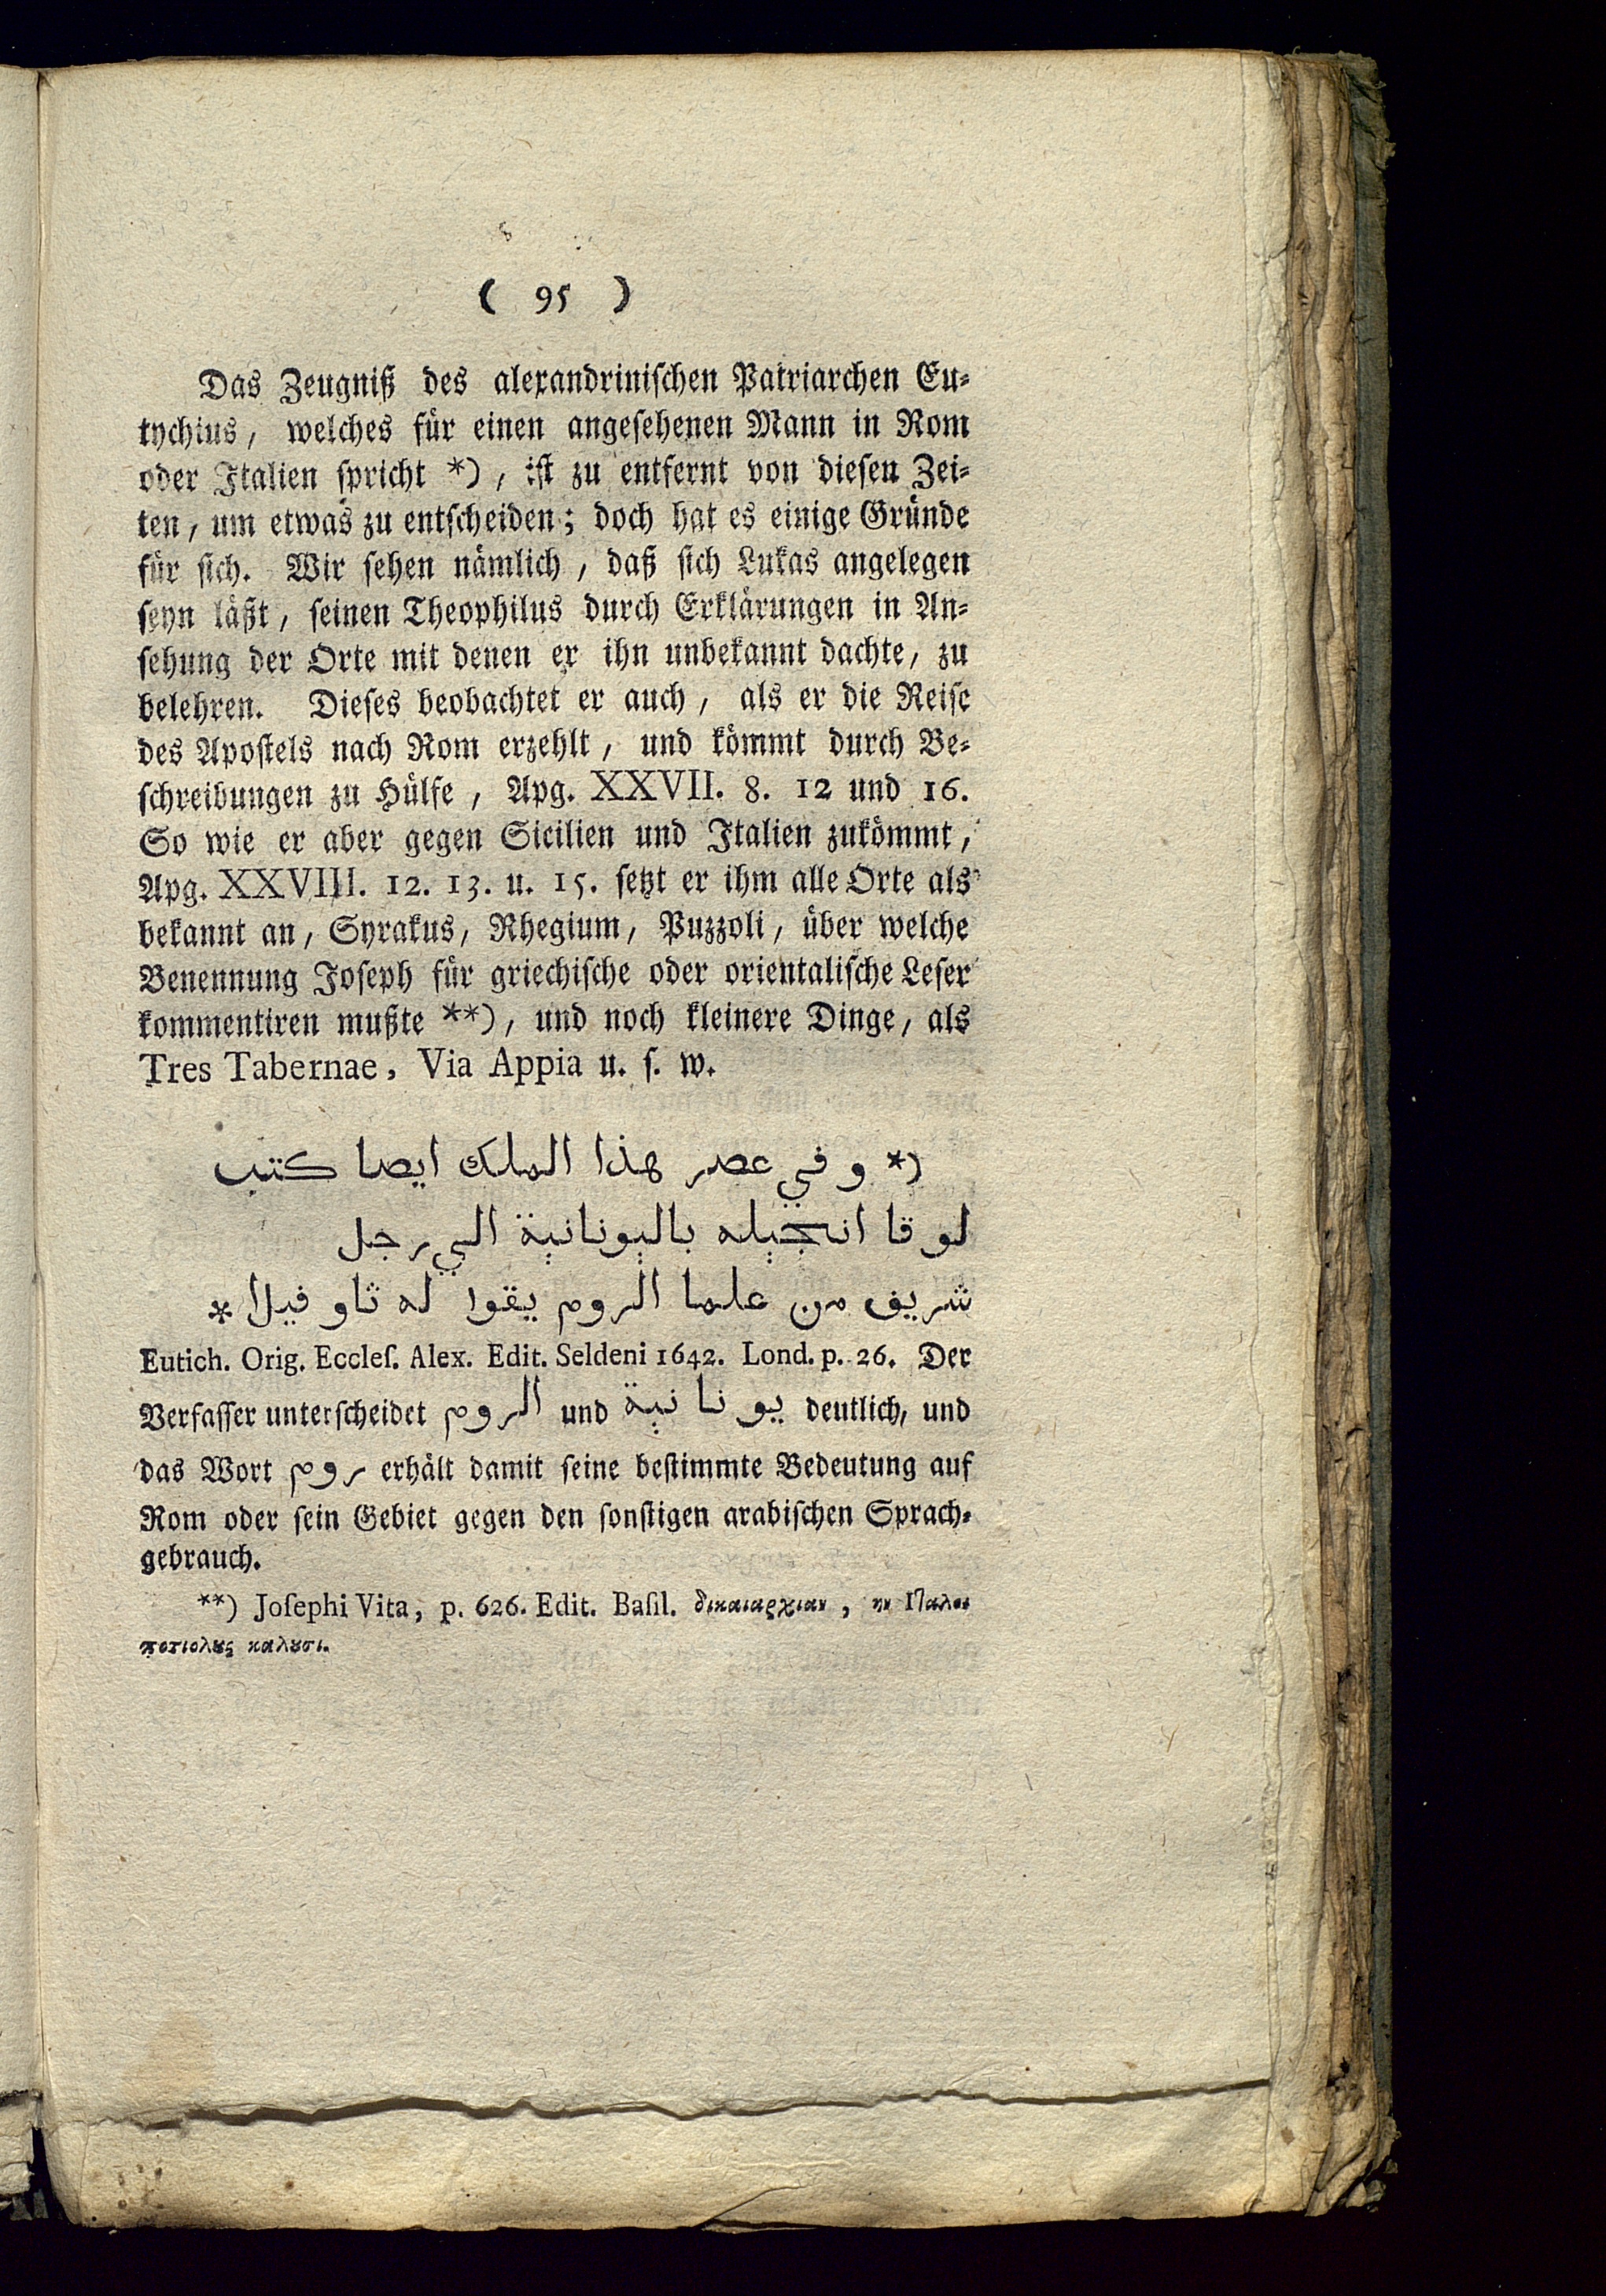 ( 95 )
Das Zeugniß des alexandrinischen Patriarchen Eu-
tychius, welches für einen angesehenen Mann in Rom
oder Italien spricht *), ist zu entfernt von diesen Zei-
ten, um etwas zu entscheiden; doch hat es einige Gründe
für sich. Wir sehen nämlich, daß sich Lukas angelegen
seyn läßt, seinen Theophilus durch Erklärungen in An-
sehung der Orte mit denen er ihn unbekannt dachte, zu
belehren. Dieses beobachtet er auch, als er die Reise
des Apostels nach Rom erzehlt, und kömmt durch Be-
schreibungen zu Hülfe, Apg. XXVII. 8. 12 und 16.
So wie er aber gegen Sicilien und Italien zukömmt,
Apg. XXVIII. 12. 13. u. 15. setzt er ihm alle Orte als
bekannt an, Syrakus, Rhegium, Puzzoli, über welche
Benennung Joseph für griechische oder orientalische Leser
kommentiren mußte **), und noch kleinere Dinge, als
Tres Tabernae, Via Appia u. s. w.
*) و في عصر هذا الملك ايصا كتب
لوقا انجيله باليونانية الي رجل
شريف من علما الروم يقوا له ثاوفيلا *
Eutich. Orig. Eccleſ. Alex. Edit. Seldeni 1642. Lond. p. 26. Der
Verfasser unterscheidet الروم und يونانية deutlich, und
das Wort روم erhält damit seine bestimmte Bedeutung auf
Rom oder sein Gebiet gegen den sonstigen arabischen Sprach-
gebrauch.
**) Joſephi Vita, p. 626. Edit. Baſil. δικαιαρχιαν, ην
ποτιολȣς καλȣσι.